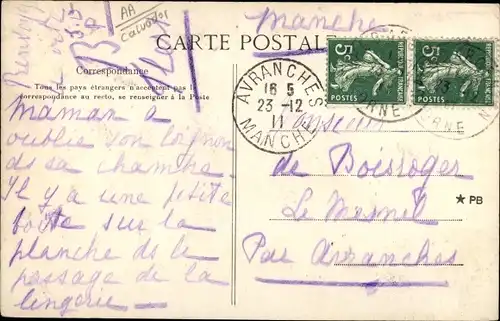 Manche
AA
Calvados
CARTE POSTALE
Correspondance
Tous les pays étrangers n'acceptent pas la
correspondance au recto, se renseigner à la Poste
maman a
oublié son lorgnon
ds sa chambre.
Il y a une petite
boîte sur la
planche ds le
passage de la
lingerie —
5c
POSTES
5c
POSTES
AVRANCHES
16 5
23 -12
11
MANCHE
de Boisroger
Le Mesnil
Par Avranches
★ PB